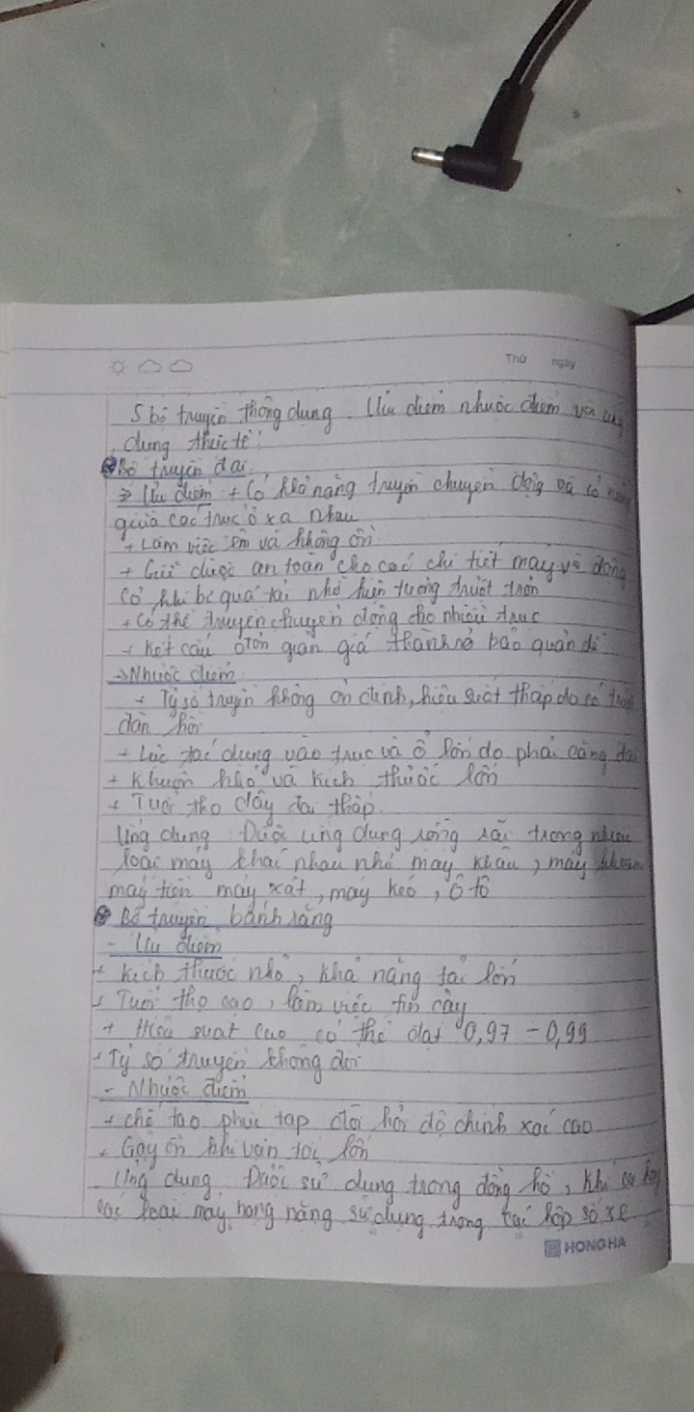 Thứ ngày
5 bộ truyền thông dụng. Ưu điểm nhược điểm và ứng
dụng thực tế:
Bộ truyền đai
→ Ưu điểm + Có khả năng truyền chuyển động và cơ năng
giữa các trục ở xa nhau
+ Làm việc êm và không ồn
+ Giữ được an toàn cho các chi tiết máy và động
cơ khi bị quá tải nhờ hiện tượng trượt trơn
+ Có thể truyền chuyển động cho nhiều trục
+ Kết cấu đơn giản giá thành rẻ bảo quản dễ
→ Nhược điểm
+ Tỷ số truyền không ổn định, hiệu suất thấp do có trượt
đàn hồi
+ Lực tác dụng vào trục và ổ lớn do phải căng đai
+ Khuôn khổ và kích thước lớn
+ Tuổi thọ dây đai thấp
Ứng dụng: Được ứng dụng rộng rãi trong nhiều
loại máy khác nhau như máy khâu, máy khoan
máy tiện máy xát, máy kéo, ô tô
Bộ truyền bánh răng
- Ưu điểm
+ Kích thước nhỏ, khả năng tải lớn
+ Tuổi thọ cao, làm việc tin cậy
+ Hiệu suất cao có thể đạt 0,97 - 0,99
+ Tỷ số truyền không đổi
- Nhược điểm
+ chế tạo phức tạp đòi hỏi độ chính xác cao
+ Gây ồn khi vận tốc lớn
- Ứng dụng: Được sử dụng trong đồng hồ, khí cụ hay
các loại máy hạng nặng sử dụng trong các hộp số xe
HONG HA